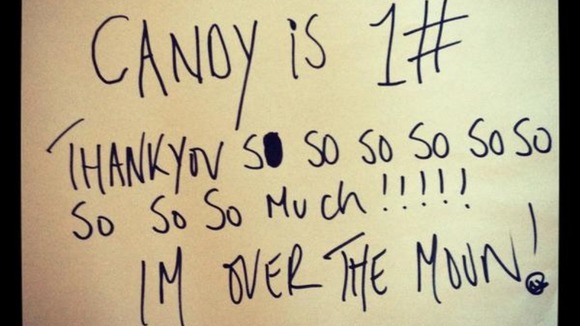 CANDY is 1#
THANKYOU SO SO SO SO SO SO
SO SO SO MUCH!!!!!
IM OVER THE MOON!